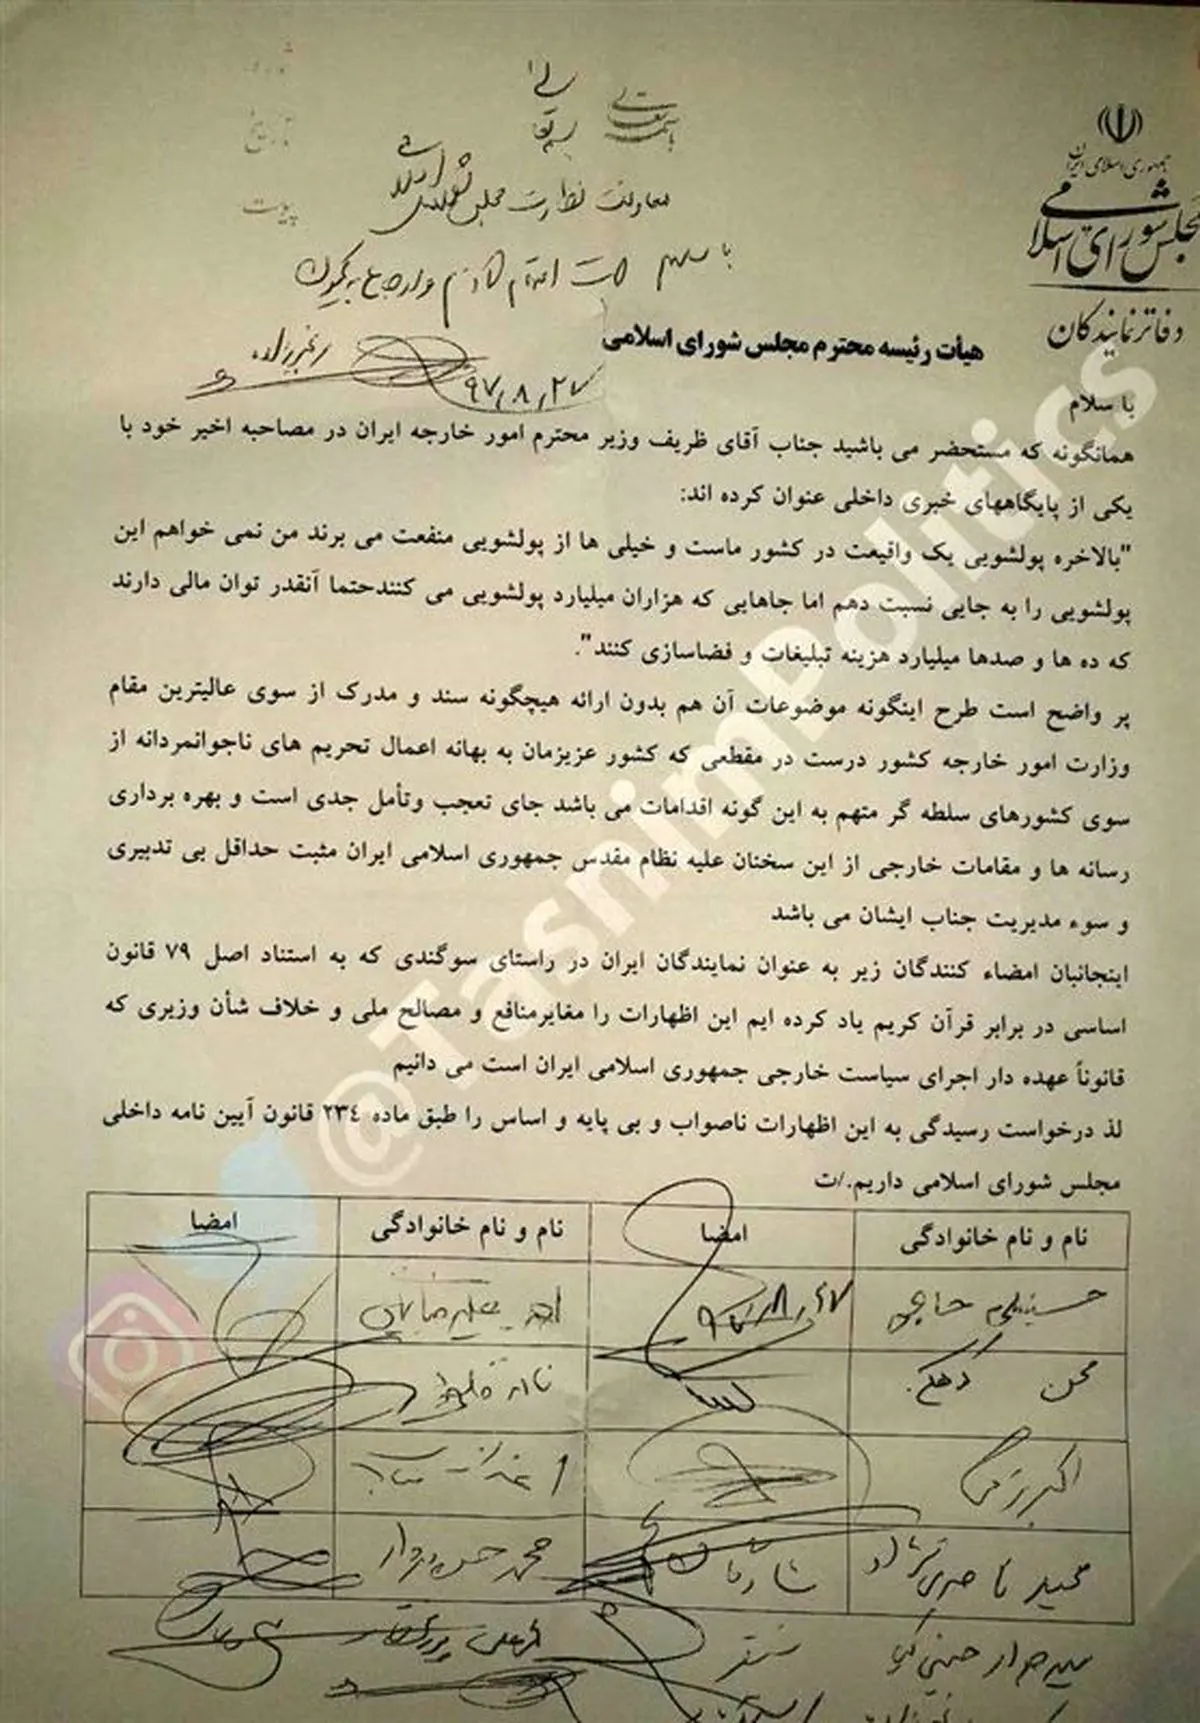 جمهوری اسلامی ایران
مجلس شورای اسلامی
دفاتر نمایندگان
شماره
تاریخ
پیوست
باسمه تعالی
بسمه تعالی
معاونت نظارت مجلس شورای اسلامی
با سلام جهت اقدام لازم و ارجاع به کمیسیون
۹۷/۸/۲۷
هیأت رئیسه محترم مجلس شورای اسلامی
با سلام
همانگونه که مستحضر می باشید جناب آقای ظریف وزیر محترم امور خارجه ایران در مصاحبه اخیر خود با
یکی از پایگاههای خبری داخلی عنوان کرده اند:
"بالاخره پولشویی یک واقیعت در کشور ماست و خیلی ها از پولشویی منفعت می برند من نمی خواهم این
پولشویی را به جایی نسبت دهم اما جاهایی که هزاران میلیارد پولشویی می کنندحتما آنقدر توان مالی دارند
که ده ها و صدها میلیارد هزینه تبلیغات و فضاسازی کنند".
پر واضح است طرح اینگونه موضوعات آن هم بدون ارائه هیچگونه سند و مدرک از سوی عالیترین مقام
وزارت امور خارجه کشور درست در مقطعی که کشور عزیزمان به بهانه اعمال تحریم های ناجوانمردانه از
سوی کشورهای سلطه گر متهم به این گونه اقدامات می باشد جای تعجب وتأمل جدی است و بهره برداری
رسانه ها و مقامات خارجی از این سخنان علیه نظام مقدس جمهوری اسلامی ایران مثبت حداقل بی تدبیری
و سوء مدیریت جناب ایشان می باشد
اینجانبان امضاء کنندگان زیر به عنوان نمایندگان ایران در راستای سوگندی که به استناد اصل ۷۹ قانون
اساسی در برابر قرآن کریم یاد کرده ایم این اظهارات را مغایرمنافع و مصالح ملی و خلاف شأن وزیری که
قانوناً عهده دار اجرای سیاست خارجی جمهوری اسلامی ایران است می دانیم
لذ درخواست رسیدگی به این اظهارات ناصواب و بی پایه و اساس را طبق ماده ۲۳۴ قانون آیین نامه داخلی
مجلس شورای اسلامی داریم./ت
نام و نام خانوادگی امضا نام و نام خانوادگی امضا
حسینعلی حاجی ۹۷/۸/۲۷ احمد علیرضابیگی
محسن کوهکن نادر
اکبر
مجید ناصری نژاد محمد
سید جواد حسینی کیا
@TasnimPolitics